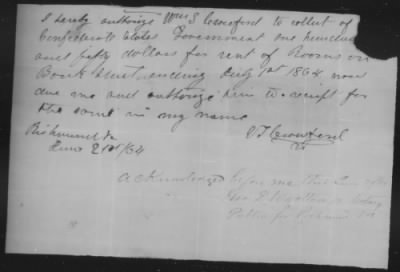 I hereby authorize Wm S Crawford to collect of
Confederate States Government one hundred
and fifty dollars for rent of Rooms on
Bank Street ending July 1st 1864 now
due me and authorize him to receipt for
the same in my name
Richmond Va
June 21st/64
Crawford
acknowledged before me this
Geo Notary
Public for Richmond